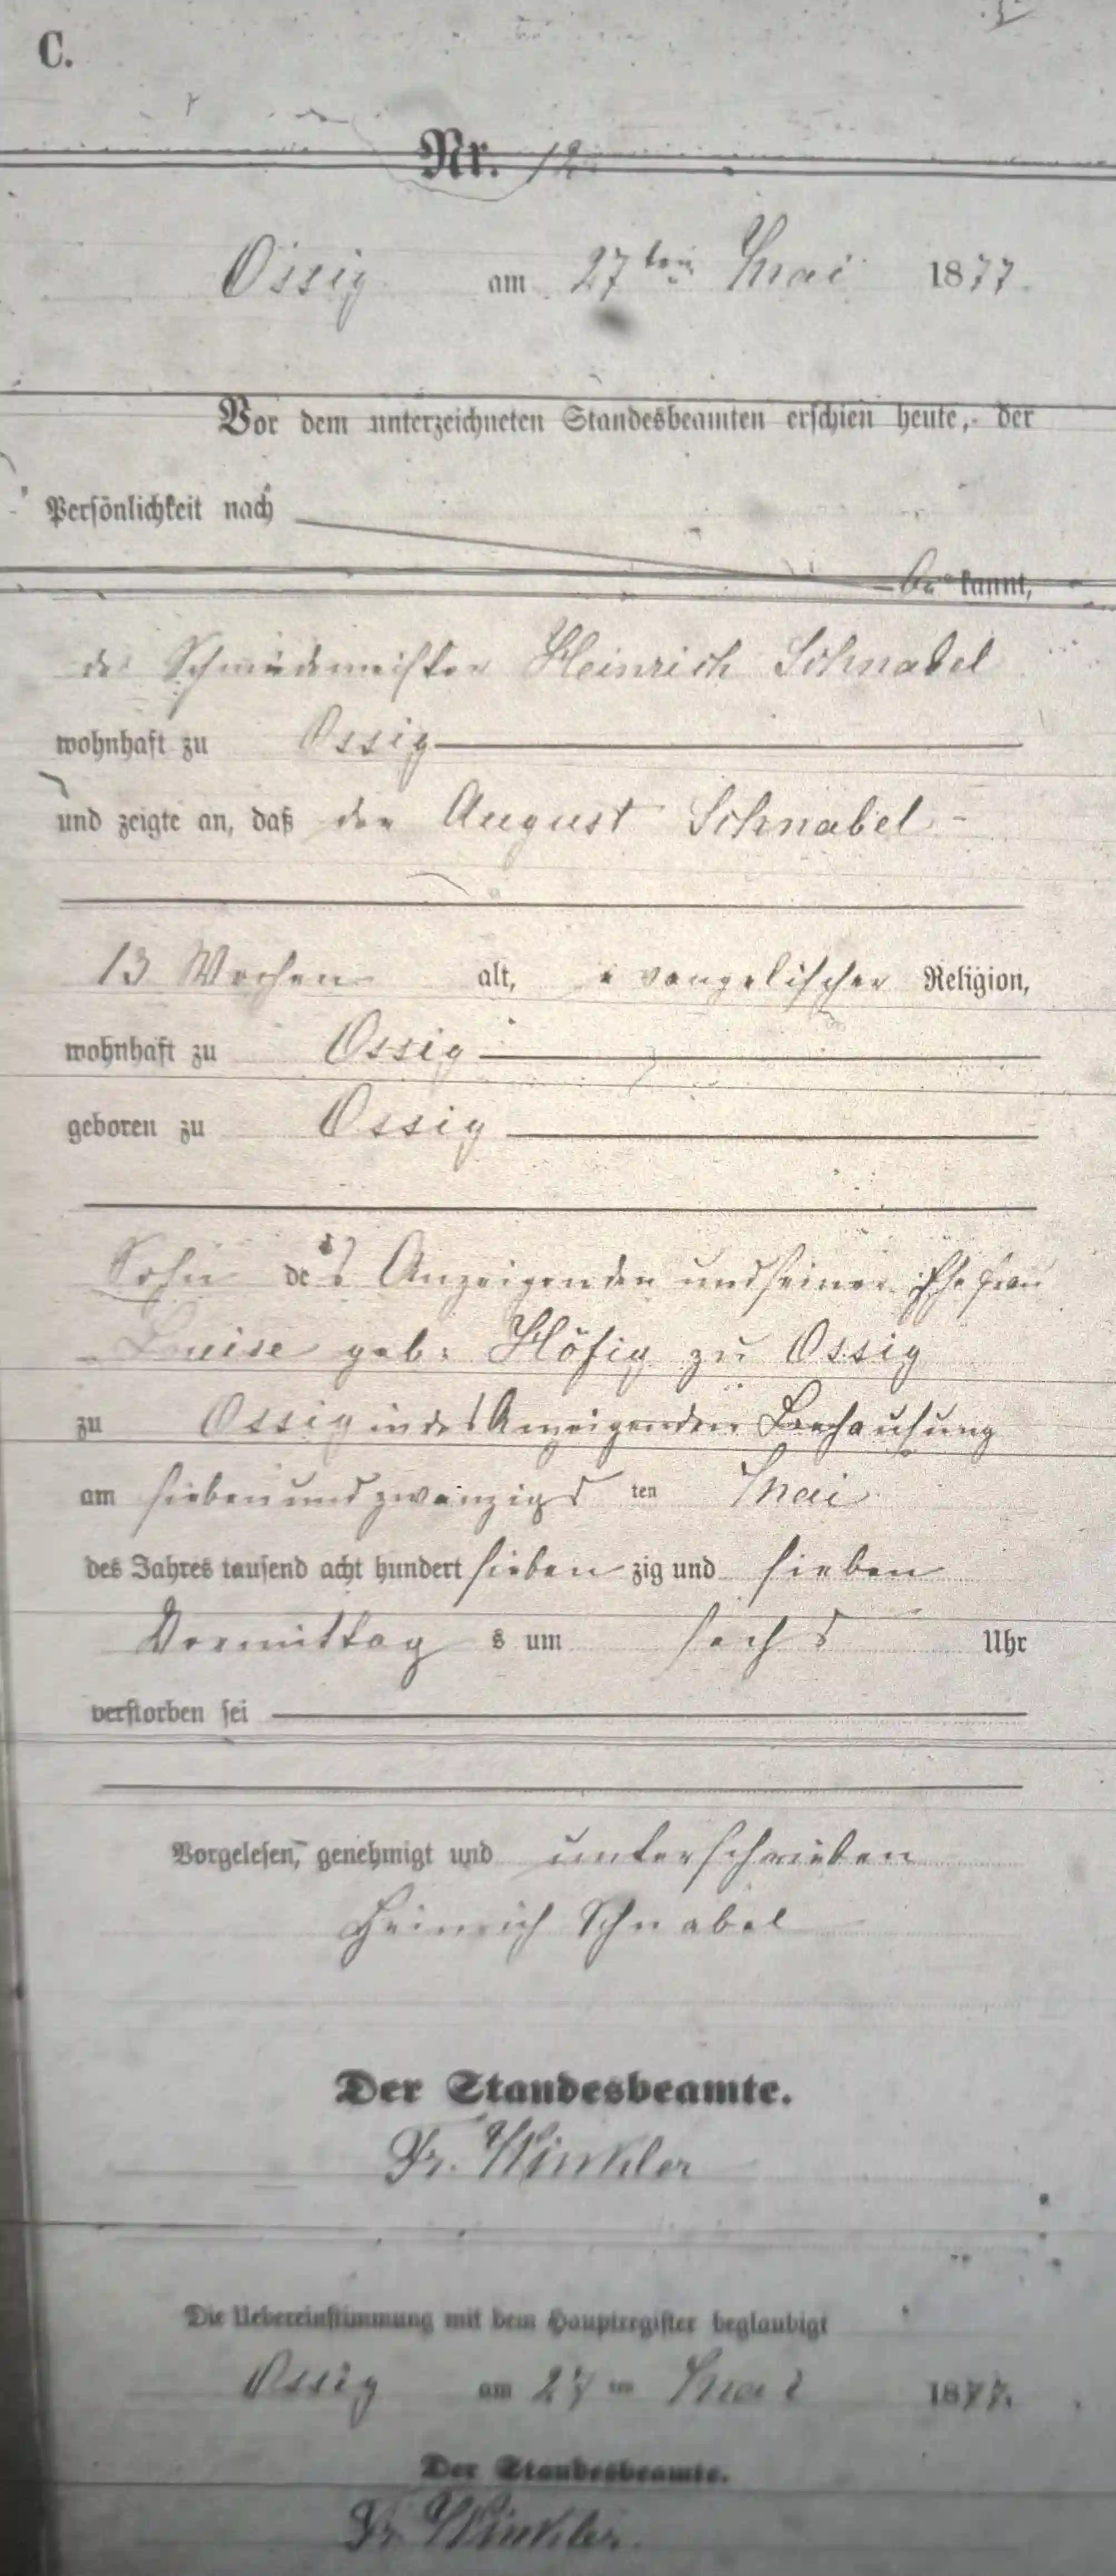 C.
Nr. 12.
Ossig am 27ten Mai 1877.
Vor dem unterzeichneten Standesbeamten erschien heute, der
Persönlichkeit nach
be kannt,
der Schmiedemeister Heinrich Schnabel
wohnhaft zu Ossig
und zeigte an, daß der August Schnabel
13 Wochen alt, evangelischer Religion,
wohnhaft zu Ossig
geboren zu Ossig
Sohn des Anzeigenden und seiner Ehefrau
Luise geb. Höfig zu Ossig
zu Ossig in des Anzeigenden Behausung
am siebenundzwanzigs ten Mai
des Jahres tausend acht hundert sieben zig und sieben
Vormittag s um sechs Uhr
verstorben sei
Vorgelesen, genehmigt und unterschrieben
Heinrich Schnabel
Der Standesbeamte.
Fr. Winkler
Die Uebereinstimmung mit dem Hauptregister beglaubigt
Ossig am 27ten Mai 1877.
Der Standesbeamte.
Fr. Winkler.